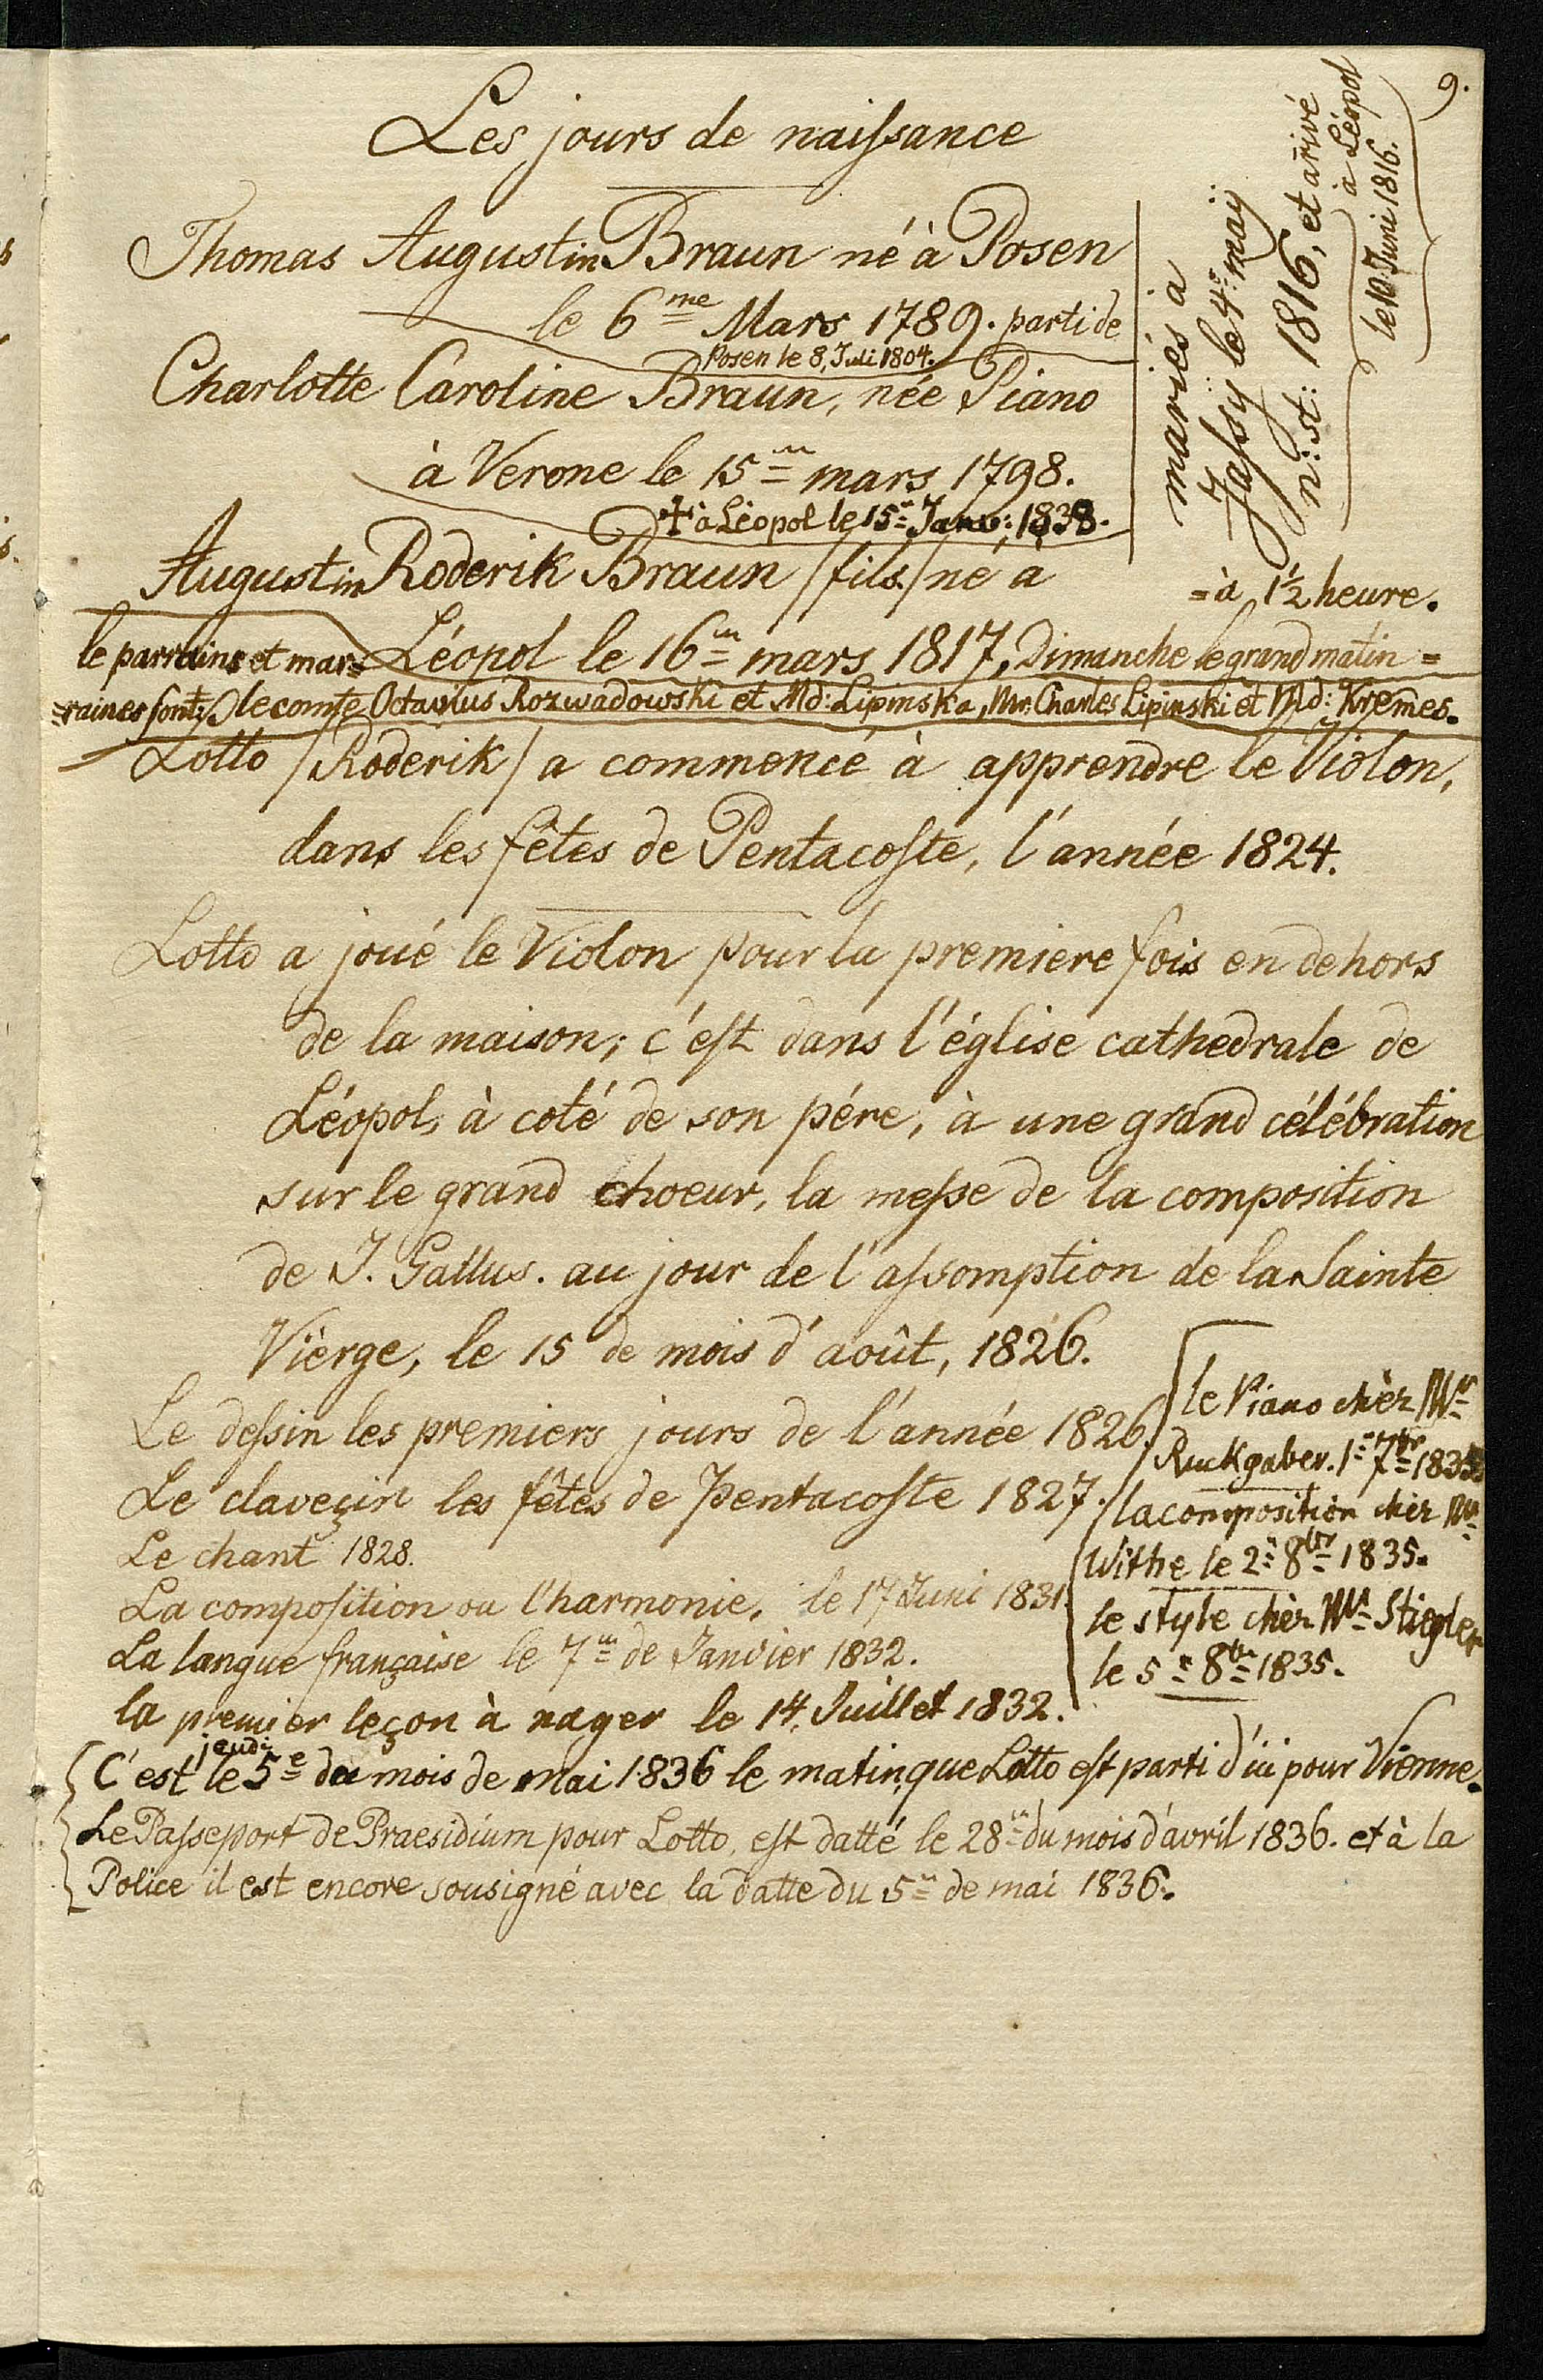 9.
Les jours de naiſsance
Thomas Augustin Braun né à Posen
le 6me Mars 1789. parti de
Posen le 8, Juli 1804.
Charlotte Caroline Braun, née Piano
à Verone le 15m mars 1798.
✝ à Léopol le 15n Janv: 1838.
mariés a
Jaſsÿ le 4r maÿ
n: st: 1816, et arivé
à Léopol
le 10 Juni 1816.
Augustin Roderik Braun /fils/ né à
=à 1½ heure.
Léopol le 16m mars 1817, Dimanche le grand matin=
le parrains et mar=
=raines sont: le comte Octavius Rozwadowski et Md: Lipinska, Mr. Charles Lipinski et Md: Kremes.
Lotto /Roderik/ a commencé à apprendre le Violon,
dans les fêtes de Pentacoſte, l'année 1824.
Lotto a joué le Violon pour la premiere fois en dehors
de la maison; c'eſt dans l'église cathedrale de
Léopol, à coté de son pére, à une grand célébration
sur le grand choeur, la meſse de la composition
de J. Gallus. au jour de l'aſsomption de la Sainte
Vièrge, le 15 de mois d'août, 1826.
Le deſsin les premiers jours de l'année 1826.
Le claveçin les fêtes de Pentacoſte 1827.
Le chant 1828.
La compoſition ou l'harmonie, le 17 Juni 1831.
La langue française le 7m de Janvier 1832.
la premier leçon à nager le 14, Juillet 1832.
le Piano chèr Mr
Ruckgaber. 1n 7br 1835.
la composition chèr Mr
Withe le 2n 8br 1835.
le style chèr Mr Stiegler
le 5n 8br 1835.
jeudi
C'est le 5e du mois de mai 1836 le matin, que Lotto eſt parti d'ici pour Vienne.
Le Paſseport de Praesidium pour Lotto, eſt datté le 28m du mois d'avril 1836. et à la
Police il est encore sousigné avec la datte du 5m de mai 1836.